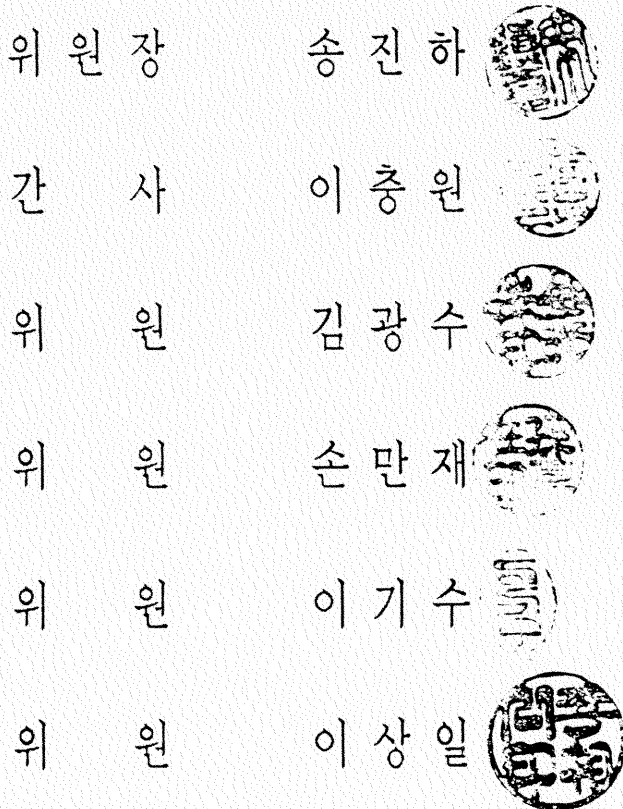 위 원 장 송 진 하
간 사 이 충 원
위 원 김 광 수
위 원 손 만 재
위 원 이 기 수
위 원 이 상 일